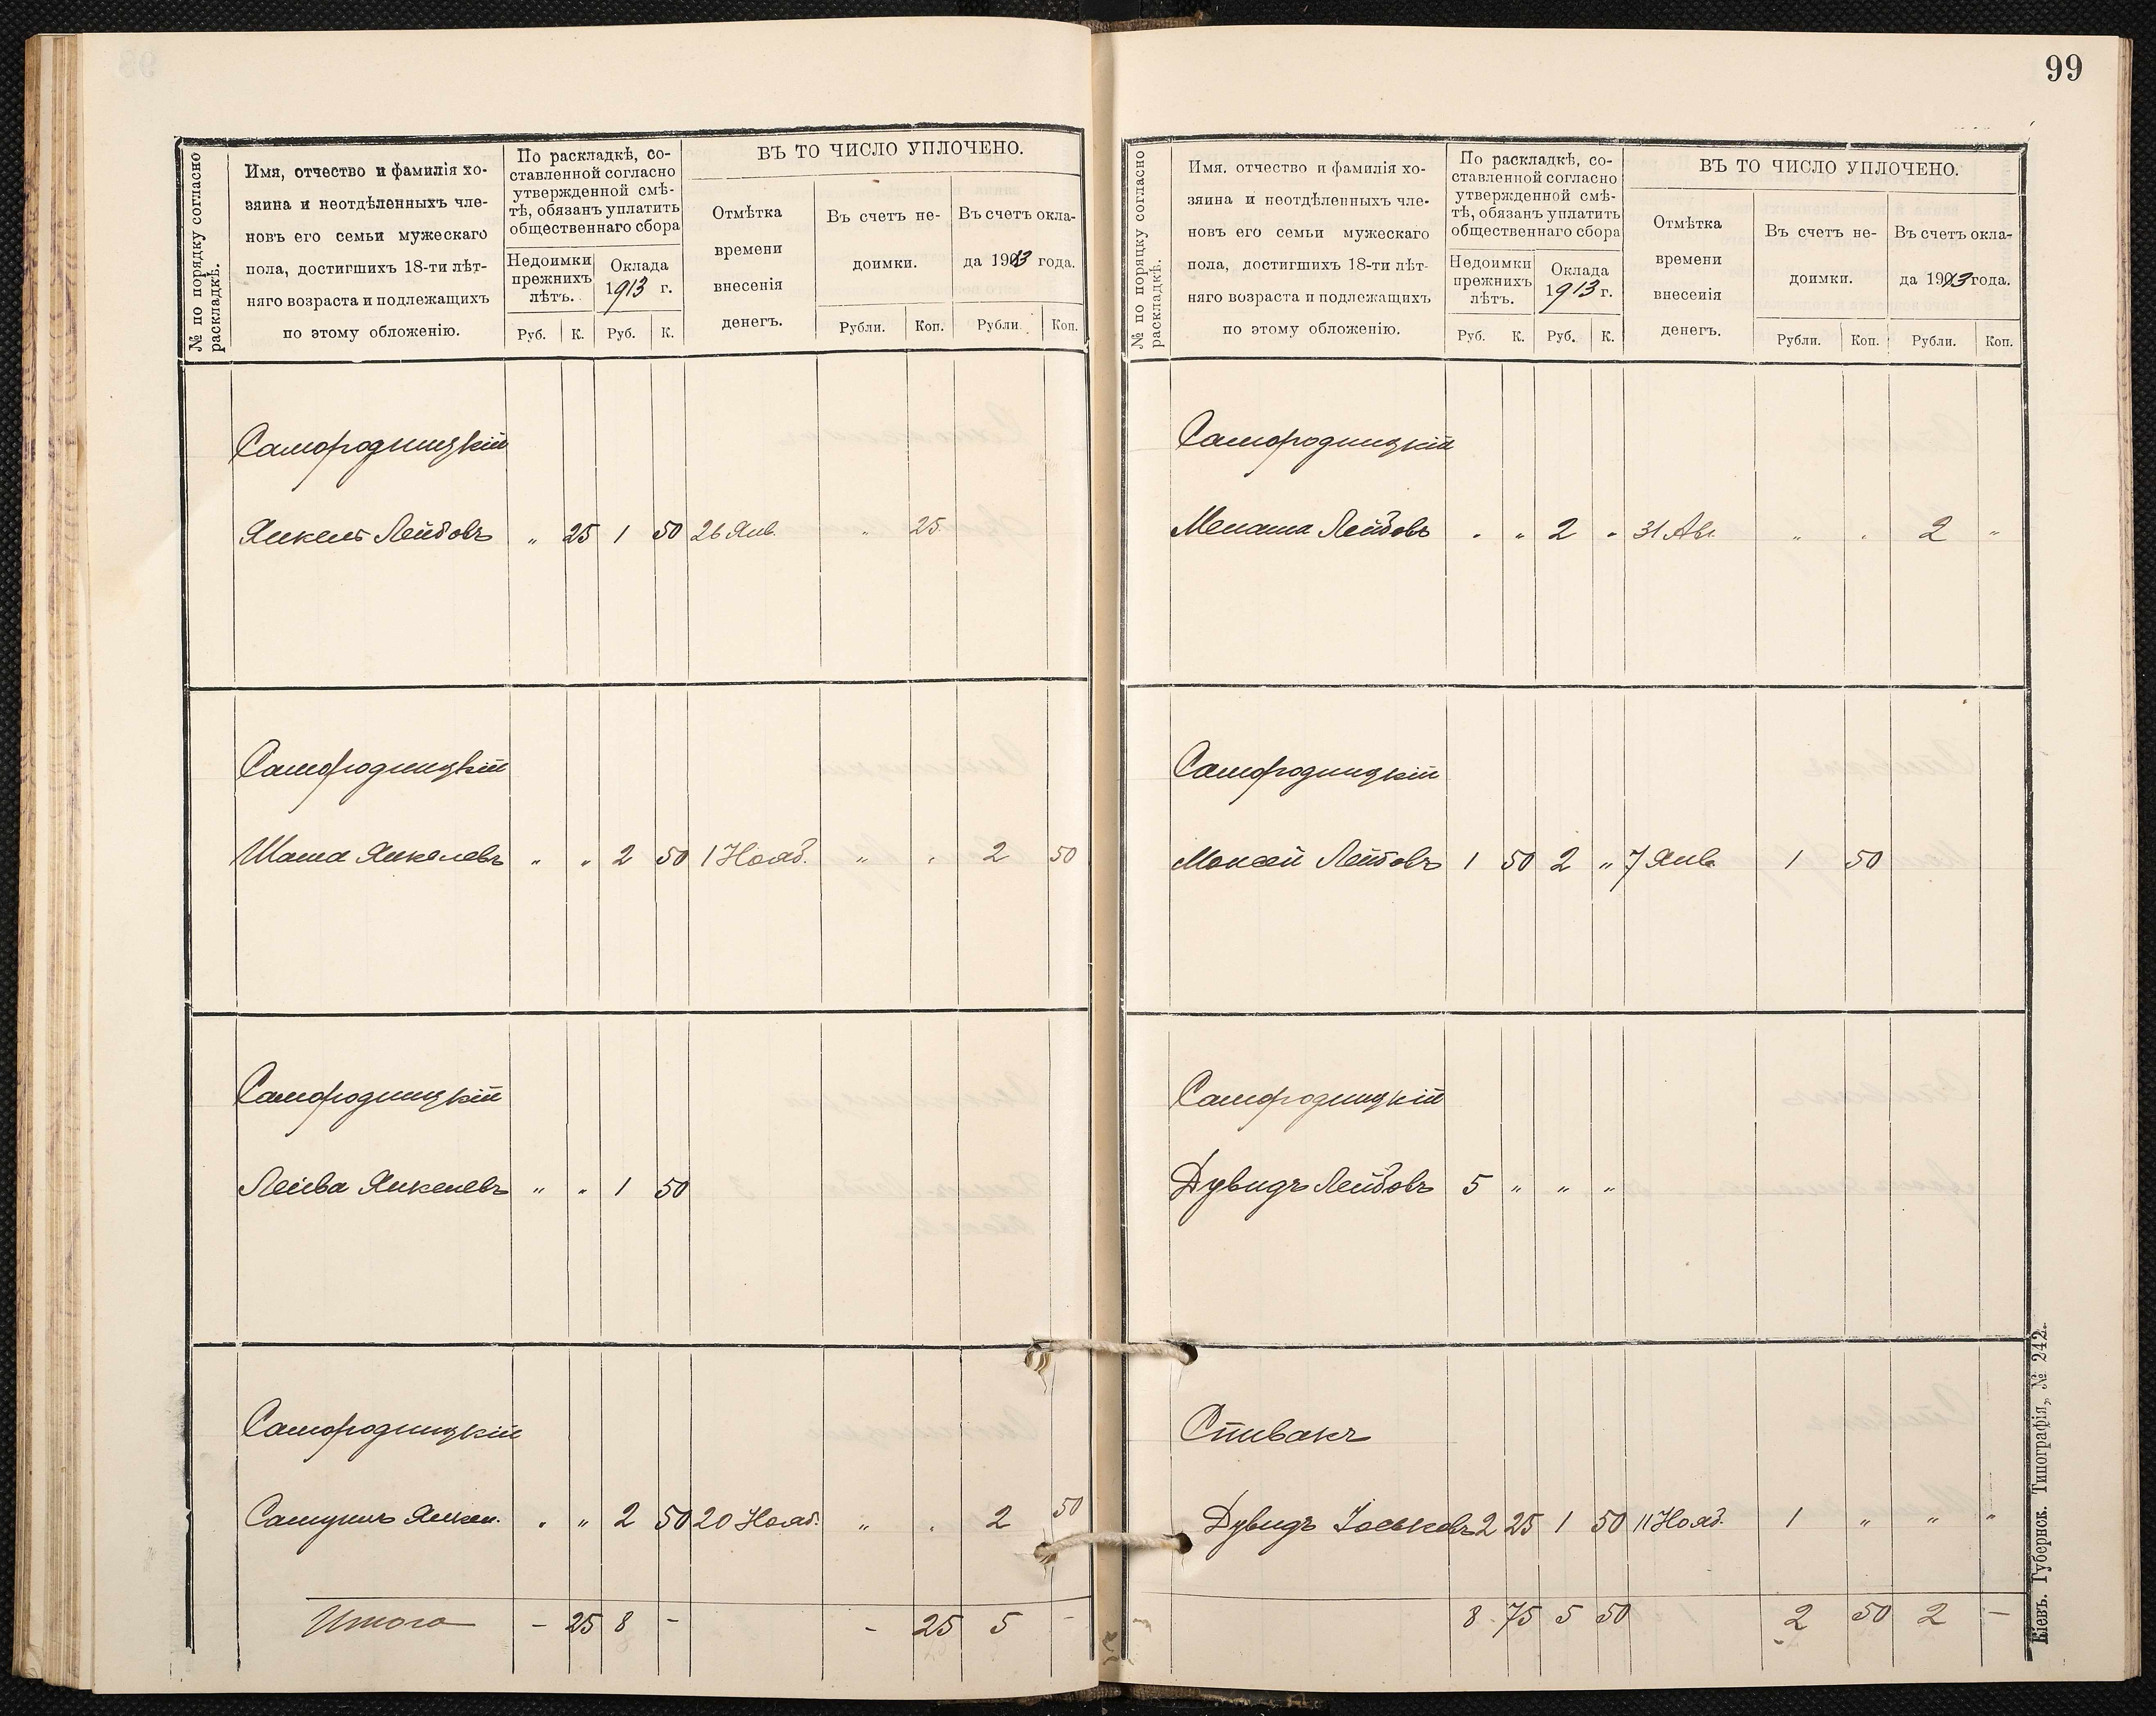 99
№ по порядку согласно раскладкѣ.
Имя, отчество и фамилія хо-
зяина и неотдѣленныхъ чле-
новъ его семьи мужескаго
пола, достигшихъ 18-ти лѣт-
няго возраста и подлежащихъ
по этому обложенію.
По раскладкѣ, со-
ставленной согласно
утвержденной смѣ-
тѣ, обязанъ уплатить
общественнаго сбора
Недоимки
прежнихъ
лѣтъ.
Оклада
1913 г.
Руб. К. Руб. К.
ВЪ ТО ЧИСЛО УПЛОЧЕНО.
Отмѣтка
времени
внесенія
денегъ.
Въ счетъ не-
доимки.
Въ счетъ окла-
да 1913 года.
Рубли. Коп. Рубли. Коп.
Самородницкій
Янкель Лейбовъ " 25 1 50 26 Янв. " 25
Самородницкій
Шама Янкелевъ " " 2 50 1 Нояб. " " 2 50
Самородницкій
Лейва Янкелевъ " " 1 50
Самородницкій
Самуилъ Янкел. " " 2 50 20 Нояб. " " 2 50
Итого - 25 8 - - 25 5 -
№ по порядку согласно раскладкѣ.
Имя. отчество и фамилія хо-
зяина и неотдѣленныхъ чле-
новъ его семьи мужескаго
пола, достигшихъ 18-ти лѣт-
няго возраста и подлежащихъ
по этому обложенію.
По раскладкѣ, со-
ставленной согласно
утвержденной смѣ-
тѣ, обязанъ уплатить
общественнаго сбора
Недоимки
прежнихъ
лѣтъ.
Оклада
1913 г.
Руб. К. Руб. К.
ВЪ ТО ЧИСЛО УПЛОЧЕНО.
Отмѣтка
времени
внесенія
денегъ.
Въ счетъ не-
доимки.
Въ счетъ окла-
да 1913 года.
Рубли. Коп. Рубли. Коп.
Самородницкій
Менаша Лейбовъ " " 2 " 31 Ав. " " 2 "
Самородницкій
Моисей Лейбовъ 1 50 2 " 7 Янв 1 50
Самородницкій
Дувидъ Лейбовъ 5 " " "
Спивакъ
Дувидъ Іоськовъ 2 25 1 50 11 Нояб. 1 " " "
8 75 5 50 2 50 2 -
Кіевъ. Губернск. Типографія, № 242.